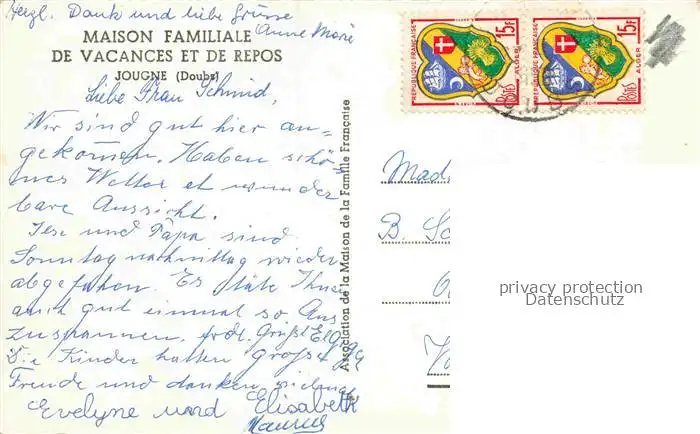 Herzl. Dank und liebe Grüsse
Anne Marie
MAISON FAMILIALE
DE VACANCES ET DE REPOS
JOUGNE (Doubs)
Liebe Frau Schmid,
Wir sind gut hier an=
gekommen. Haben schö=
nes Wetter et wunder
bare Aussicht.
und Papa sind
Sonntag nachmittag wieder
abgefahren. Es täte Ihnen
auch gut einmal so Aus
zuspannen.
Die Kinder hatten große
Freude und danken vielmals
Evelyne und Elisabeth
Association de la Maison de la Famille Française
RÉPUBLIQUE FRANÇAISE
15F
ALGER
POSTES
RÉPUBLIQUE FRANÇAISE
15F
ALGER
POSTES
Mad
B. Sc
privacy protection
Datenschutz